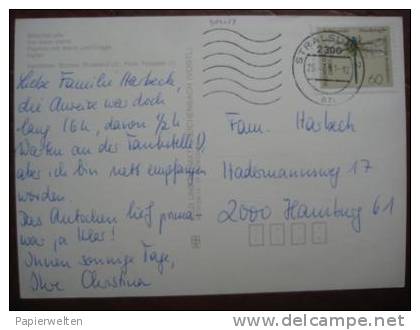 Liebe Familie Harbeck,
die Anreise war doch
lang 16h, davon 1/2h
Warten an der Tankstelle(!)
aber ich bin nett empfangen
worden.
Das Autochen lief prima-
war ja klar!
Ihnen sonnige Tage,
Ihre Christina
STRALSUND
2300
60
Fam. Harbeck
Hadermannsweg 17
2000 Hamburg 61
Papierwelten